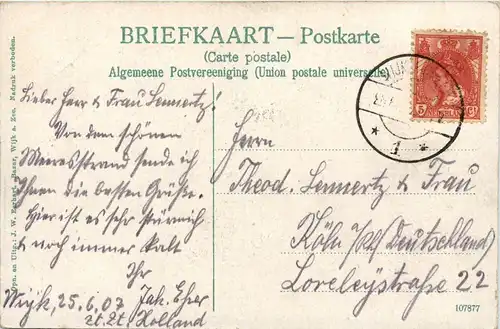 BRIEFKAART — Postkarte
(Carte postale)
Algemeene Postvereeniging (Union postale universelle)
Lieber Herr & Frau Lennertz!
Von dem schönen
Meeresstrand sende ich
Ihnen die besten Grüße.
Hier ist es sehr stürmisch
& noch immer kalt
Ihr
Jak. Esser
Wijk, 25.6.07
zt. Zt. Holland
Herrn
Theod. Lennertz & Frau
Köln a/Rh (Deutschland)
Loreleystraße 22
107877
J. W. Eggharf. Bazar, Wijk a. Zee. Nadruk verboden.
5 ct
NEDERLAND
1